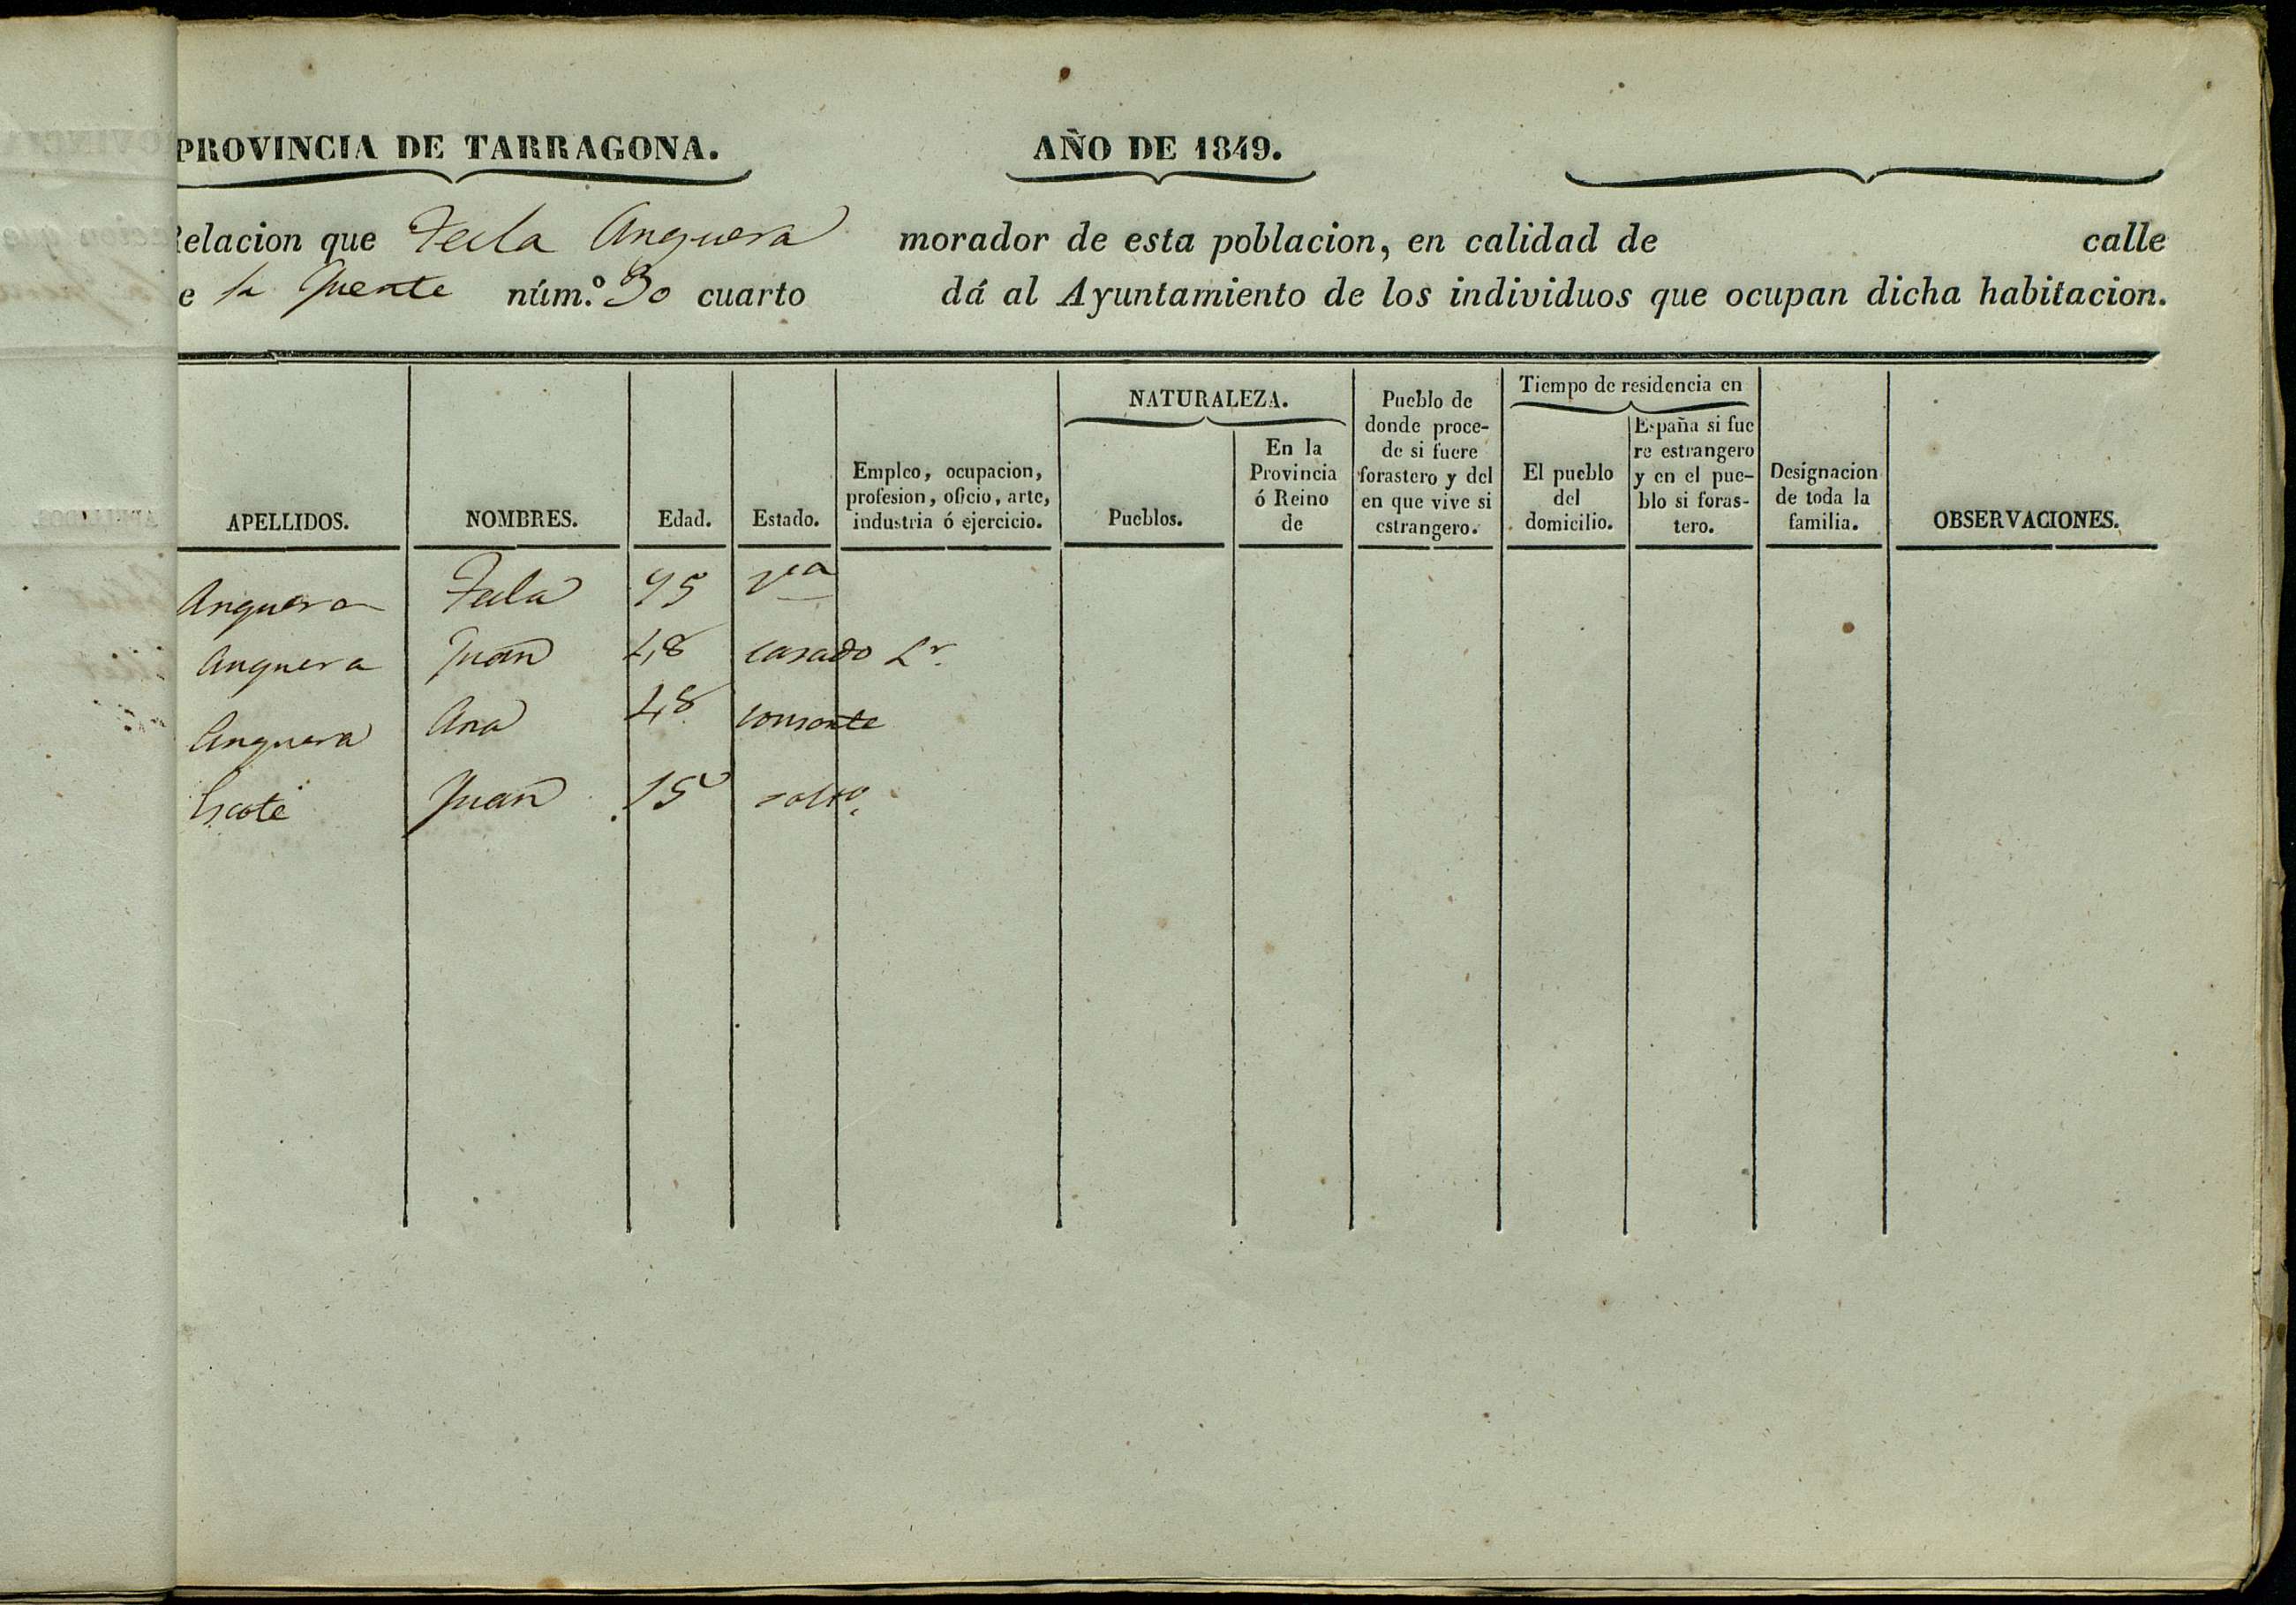 PROVINCIA DE TARRAGONA. AÑO DE 1849.
Relacion que Tecla Anguera morador de esta poblacion, en calidad de calle
e la Fuente núm.º 30 cuarto dá al Ayuntamiento de los individuos que ocupan dicha habitacion.
APELLIDOS.
NOMBRES.
Edad.
Estado.
Empleo, ocupacion,
profesion, oficio, arte,
industria ó ejercicio.
NATURALEZA.
Pueblos.
En la
Provincia
ó Reino
de
Pueblo de
donde proce-
de si fuere
forastero y del
en que vive si
estrangero.
Tiempo de residencia en
El pueblo
del
domicilio.
España si fue
re estrangero
y en el pue-
blo si foras-
tero.
Designacion
de toda la
familia.
OBSERVACIONES.
Anguera Tecla 75 vda
Anguera Juan 48 casado Lr.
Anguera Ana 48 consorte
Escoté Juan 15 solto.